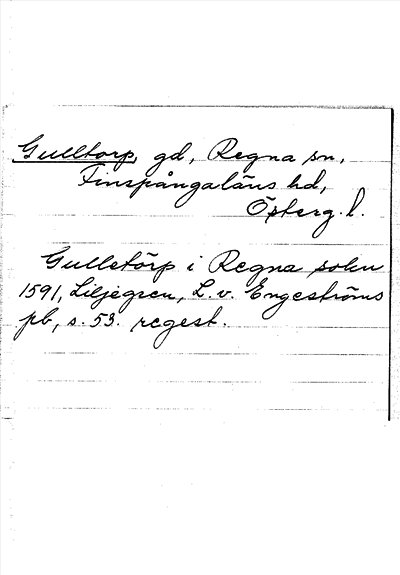 Gulltorp, gd, Regna sn,
Finspångaläns hd,
Österg. l.
Gulletörp i Regna sokn
1591, Liljegren, L. v. Engeströms
pb, s. 53. regest.